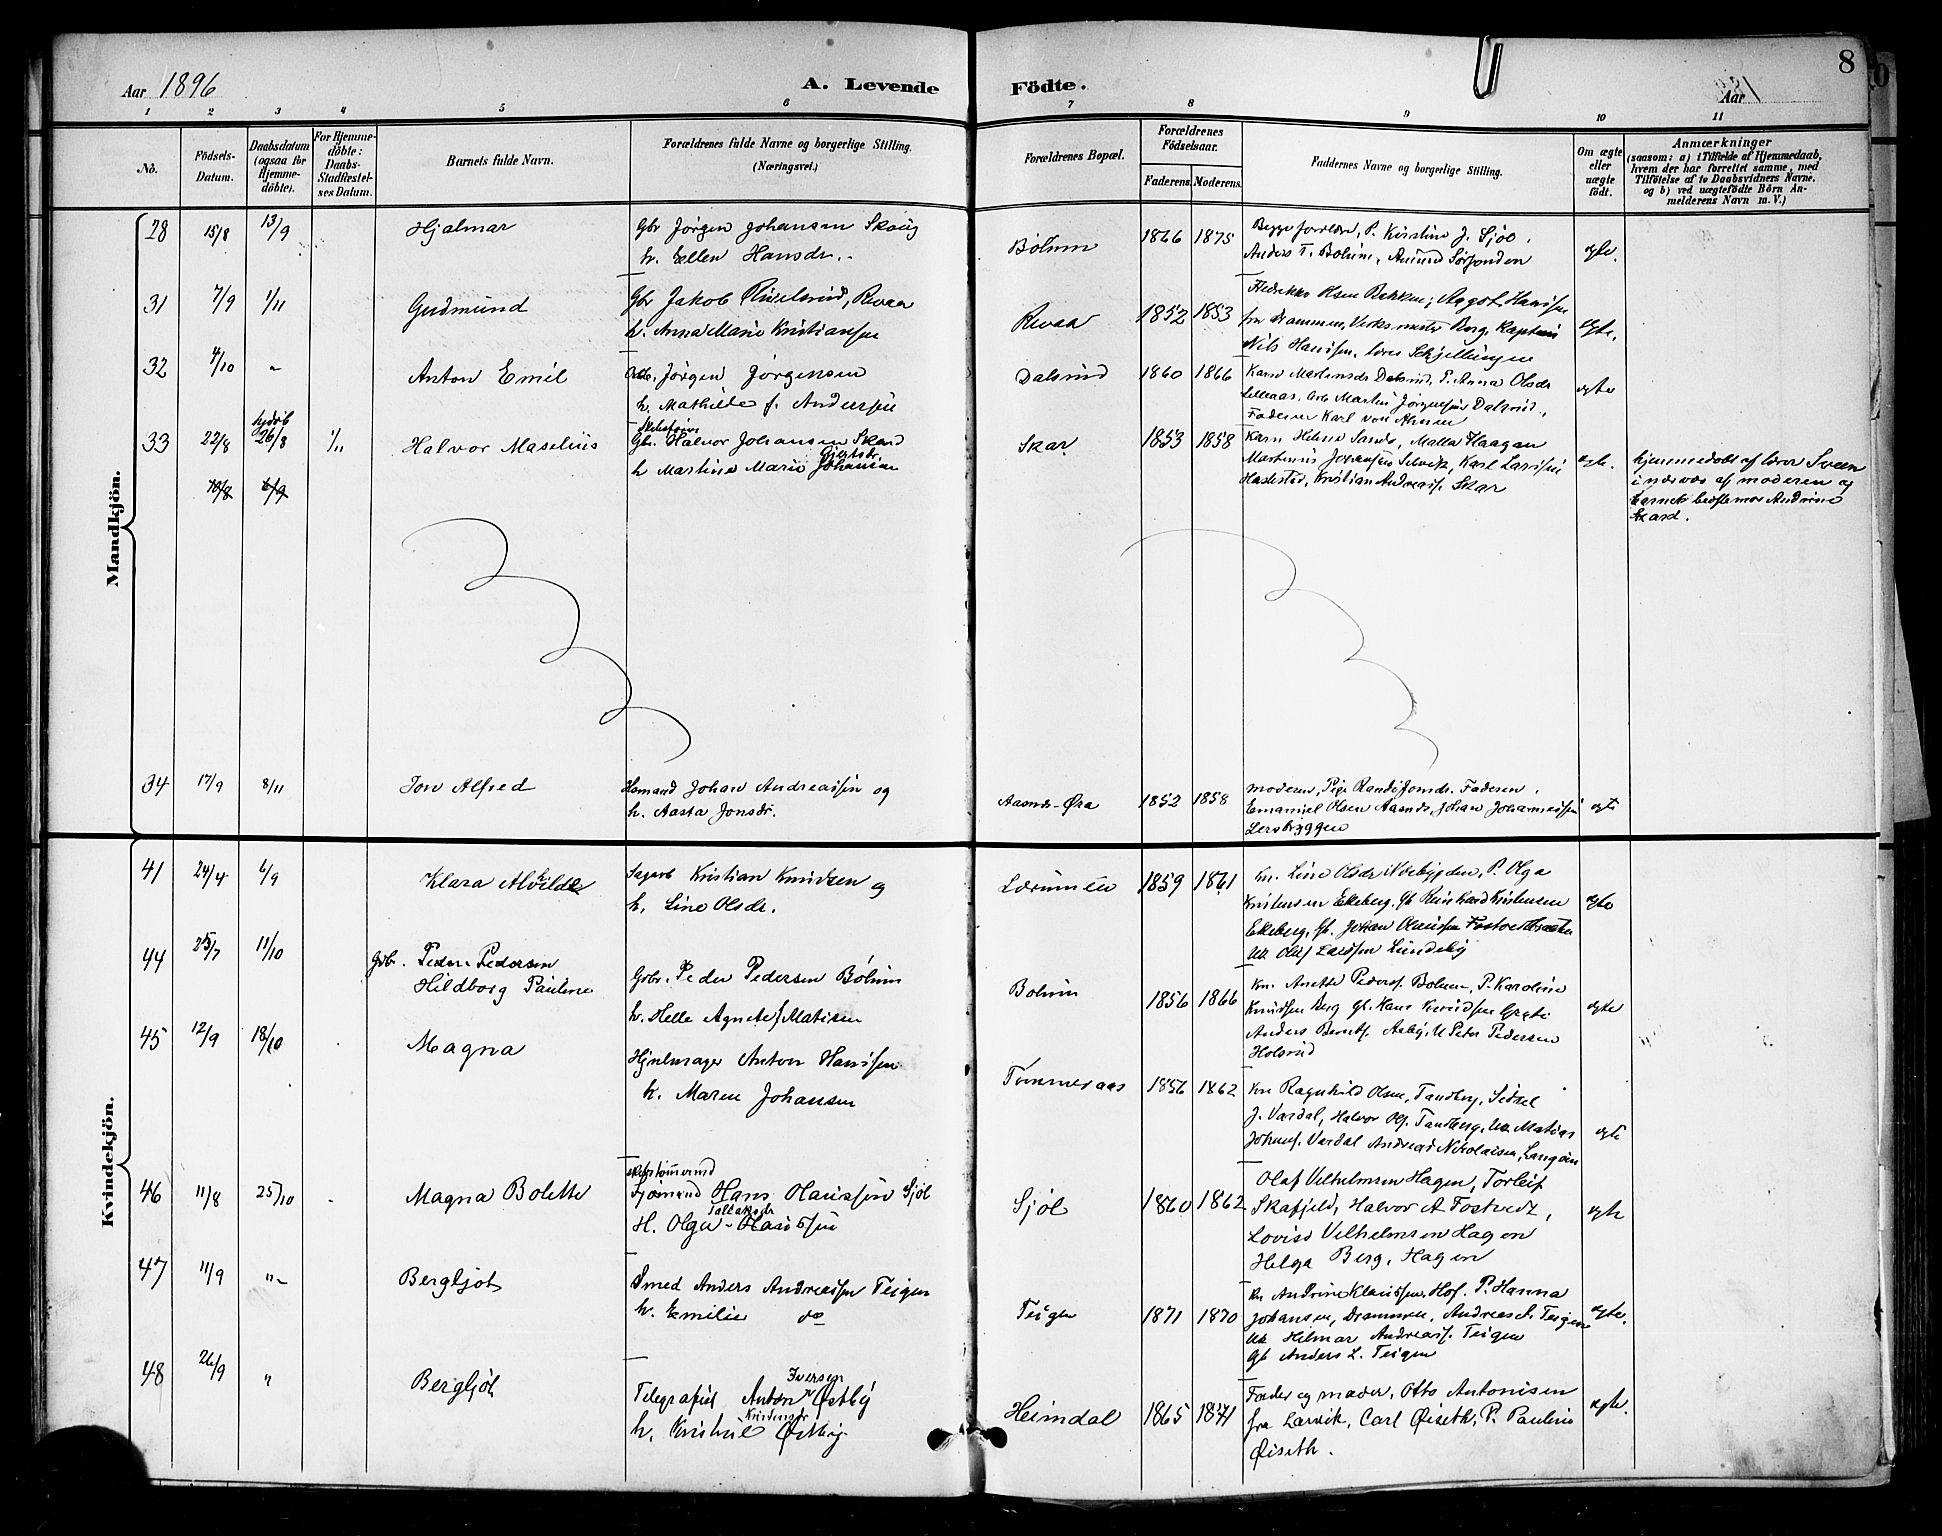 Aar 1896
A. Levende Födte.
8
Aar
1 2 3 4 5 6 7 8 9 10 11
No.
Födsels-Datum.
Daabsdatum (ogsaa for Hjemme-döbte).
For Hjemme-döbte: Daabs-Stadfæstel-ses Datum.
Barnets fulde Navn.
Forældrenes fulde Navne og borgerlige Stilling. (Næringsvei.)
Forældrenes Bopæl.
Forældrenes Födselsaar.
Faderens. Moderens.
Faddernes Navne og borgerlige Stilling.
Om ægte eller uægte födt.
Anmærkninger
(saasom: a) i Tilfælde af Hjemmedaab, hvem der har forrettet samme, med Tilföielse af to Daabsvidners Navne. og b) ved uægtefödte Börn An-melderens Navn m. V.)
Mandkjön.
28 15/8 13/9 Hjalmar
Gbr Jörgen Johansen Skaug
h. Ellen Hansdr.
Bolum 1866 1875
Begge forældre, P. Kirstine J. Sjöl.
Anders T. Bolum, Amund Sörsonden
egte.
31 7/9 1/11 Gudmund
Gbr Jakob Revaa
h. Anna Marie Kristiansen
Revaa 1852 1853
Fredrikke Olsen Bakken, Aagot Hanssen
fra Drammen, Verksmester Berg, Kaptein
Nils Hanssen, lærer Schjellingen
egte.
32 4/10 " Anton Emil
Jörgen Jörgensen
h. Mathilde f. Anderssen
Dalsrud 1860 1866
Karen Martinsdr Dalsrud, P. Anna Olsdr
Lilleaas, Arb Martin Jörgensen Dalsrud,
Faderen Karl von Ahnen
egte
33 22/8 hjdöb 26/8 1/11 Halvor Maselius
Gbr. Halvor Johansen Skard
h Martine Marie Gjertsdr Johansen
Skar 1853 1858
Karn Helene Sands, Malla Haagan
Martinius Johansen Selvik, Karl Larssen
Haslestad, Kristian Andreass. Skar
egte.
hjemmedöbt af lærer Sveen
i nærvær af moderen og
barnets bedstemor Andrine
Skard.
19/8 6/9
34 17/9 8/11 Jon Alfred
Husmand Johan Andreassen og
h. Aasta Jonsdr.
Aasnds-Øra 1852 1858
moderen, Pige Randi Jonsdr. Faderen,
Emanuel Olsen Aasnds, Johan Johannessen
Lersbryggen
egte
Kvindekjön.
41 24/4 6/9 Klara Alvilde
Sagarb Kristian Knudsen og
h. Line Olsdr.
Lærumeie 1859 1861
kn. Line Olsdr Nøebygden, P. Olga
Kristensen Ekeberg, Gb Reinhard Kristensen
Ekeberg, Gb. Johan Olaussen
Uk Olaf Larssen Lundeby
egte
44 25/7 11/10 Gbr. Peder Pedersen
Hildborg Pauline
Gbr. Peder Pedersen Bolum
h. Helle Agnete f Matisen
Bolum 1856 1866
Kn. Anette Peders. Bolum, P. Karoline
Knudsen Berg Gb. Hans Knudsen Grøte
Anders Berntsr. Aasby, U Peter Pedersen
Holsrud
egte
45 12/9 18/10 Magna
Hjulmager Anton Hanssen
h. Maren Johansen
Tommeraas 1856 1862
Kn Ragnhild Olsen, Tandberg, Sidsel
J. Vardal, Halvor Ols. Tandberg, Uk Matias
Johans. Vardal Andreas Nikolaisen, Langøen
egte
46 11/8 25/10 Magna Bolette
skibstömmermd
Sjömand Hans Hanssen Sjöl
H. Olga Tollaksdr Hanssen
Sjöl 1860 1862
Olaf Vilhelmsen Hagen, Torleif
Skafjeld, Halvor A Fostvedt,
Lovise Vilhelmsen Hagen
Helga Berg, Hagen
egte
47 11/9 " Bergljot
Smed Anders Andreassen Teigen
h. Emilie do
Teigen 1871 1870
Kn Andrine Klaussen, Hof. P. Hanna
Johansen, Drammen, Andreas A. Teigen
Uk Hilmar Andreass. Teigen
Gb Anders L. Teigen
egte.
48 26/9 " Bergljöt
Telegrafist Anton Iversen Østby
h. Kristine Kristensdr Østby
Heimdal 1865 1871
Fader og moder, Otto Antonisen
fra Larvik, Carl Øiseth, P. Pauline
Øiseth.
egte.